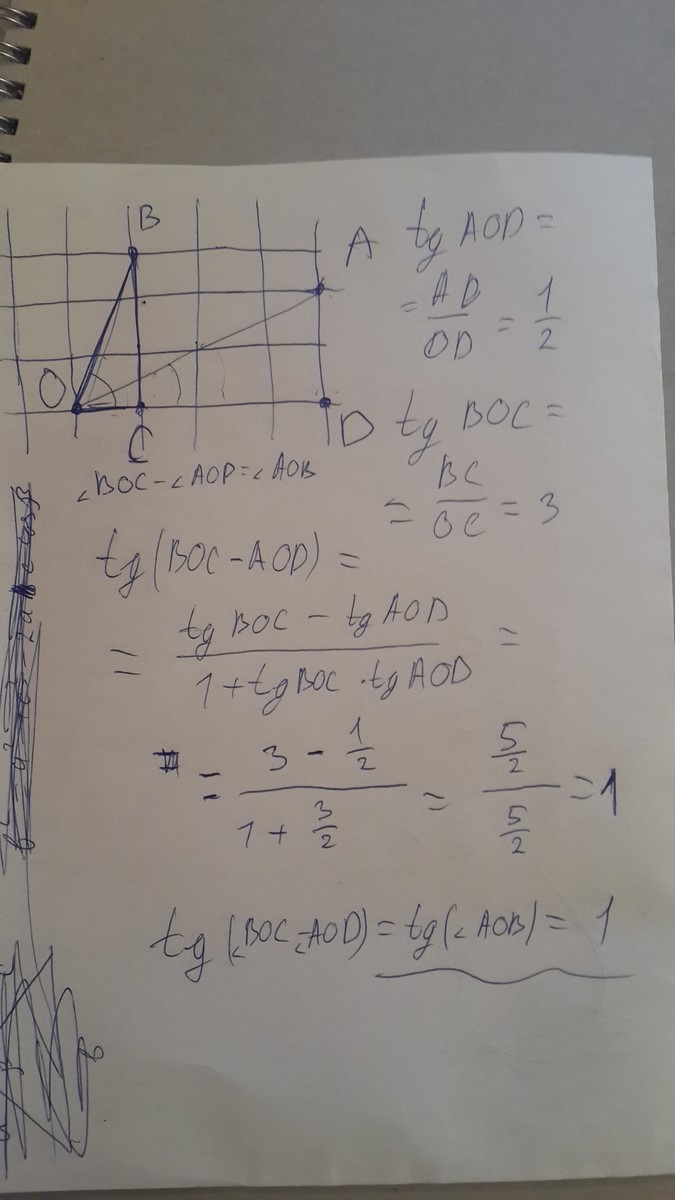 B
A
O
C
D
tg AOD =
= AD/OD = 1/2
tg BOC =
= BC/OC = 3
∠BOC - ∠AOD = ∠AOB
tg(BOC - AOD) =
= (tg BOC - tg AOD)/(1 + tg BOC · tg AOD) =
= (3 - 1/2)/(1 + 3/2) = (5/2)/(5/2) = 1
tg(∠BOC-∠AOD) = tg(∠AOB) = 1